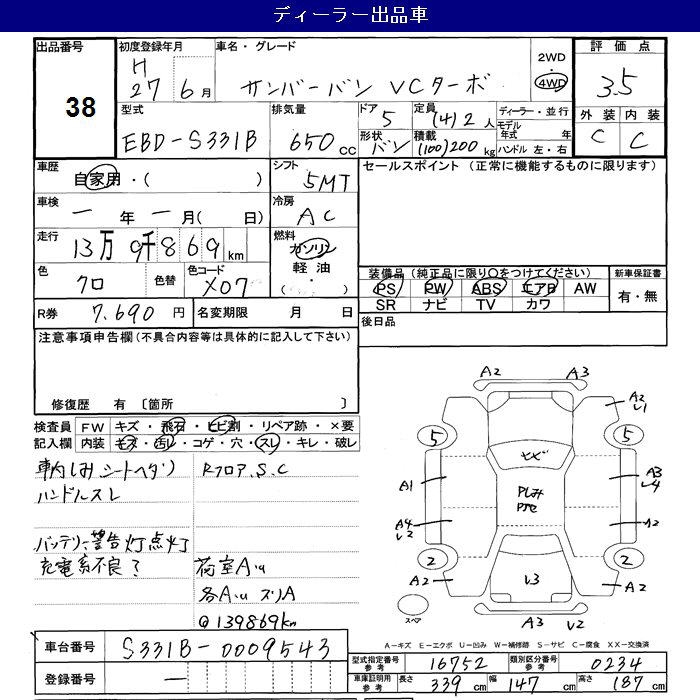 ディーラー出品車
出品番号 38
初度登録年月 H 27年 6月
車名・グレード サンバーバン VCターボ
2WD 4WD
評価点 3.5
型式 EBD-S331B
排気量 650 cc
ドア 5
形状 バン
定員 (4)2人
積載 (100)200 kg
ディーラー・並行
モデル年式 年
ハンドル 左・右
外装 C
内装 C
車歴 自家用・( )
シフト 5MT
セールスポイント (正常に機能するものに限ります)
車検 ー年ー月( 日)
冷房 AC
走行 13万9千869km
燃料 ガソリン・軽油・( )
色 クロ
色替
色コード X07
装備品(純正品に限り○をつけてください)
新車保証書 有・無
PS PW ABS エアB AW
SR ナビ TV カワ
R券 7.690円
名変期限 月 日
後日品
注意事項申告欄(不具合内容等は具体的に記入して下さい)
修復歴 有 〔箇所 〕
検査員記入欄
FW キズ・飛石・ヒビ割・リペア跡・×要
内装 キズ・汚れ・コゲ・穴・スレ・キレ・破レ
車内しみ シートヘタリ
ハンドルスレ
RフロアS.C
バッテリー警告灯点灯
充電系不良?
荷室A.u
各A.u スリA
@139869km
A2 A3
A2 u1
5 5
A1
A3 u4
A4 u2
A2
2 2
A2
A2
u3
A3 u2
スペア
A-キズ E-エクボ U-凹み W-補修跡 S-サビ C-腐食 XX-交換済
車台番号 S331B-0009543
登録番号 ー
型式指定番号 参考 16752
類別区分番号 参考 0234
車庫証明用 参考 長さ 339cm 幅 147cm 高さ 187cm